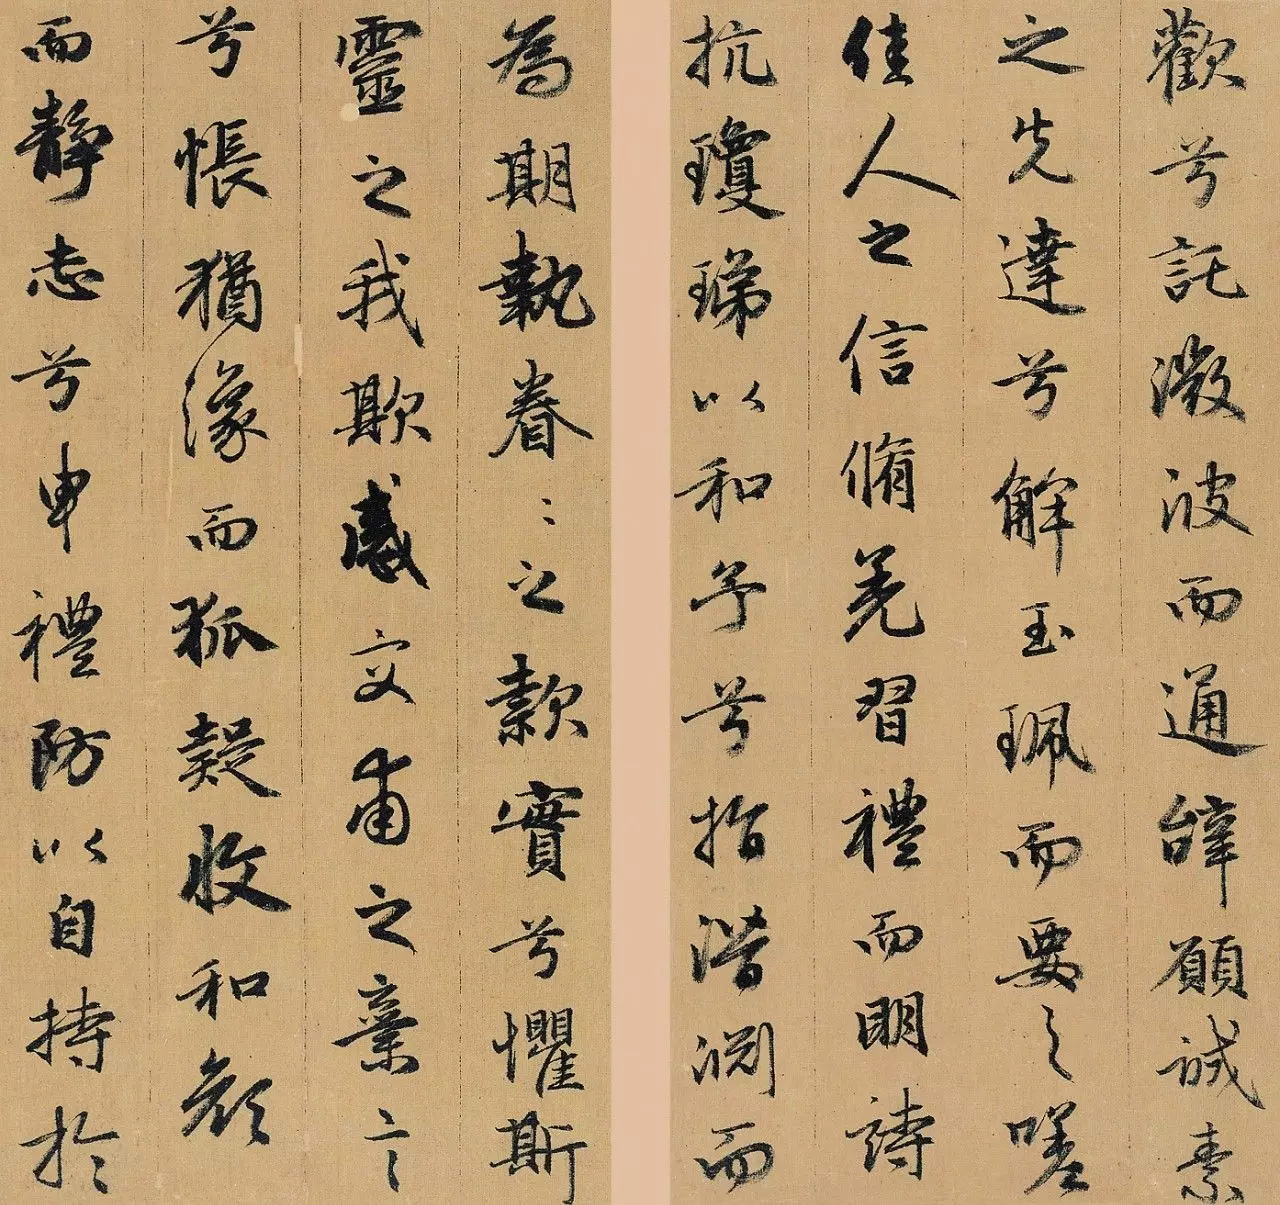 歡兮託微波而通辭願誠素
之先達兮解玉珮而要之嗟
佳人之信脩羌習禮而明詩
抗瓊珶以和予兮指潛淵而
為期執眷〻之款實兮懼斯
靈之我欺感交甫之棄言
兮悵猶豫而狐疑收和顏
而靜志兮申禮防以自持於